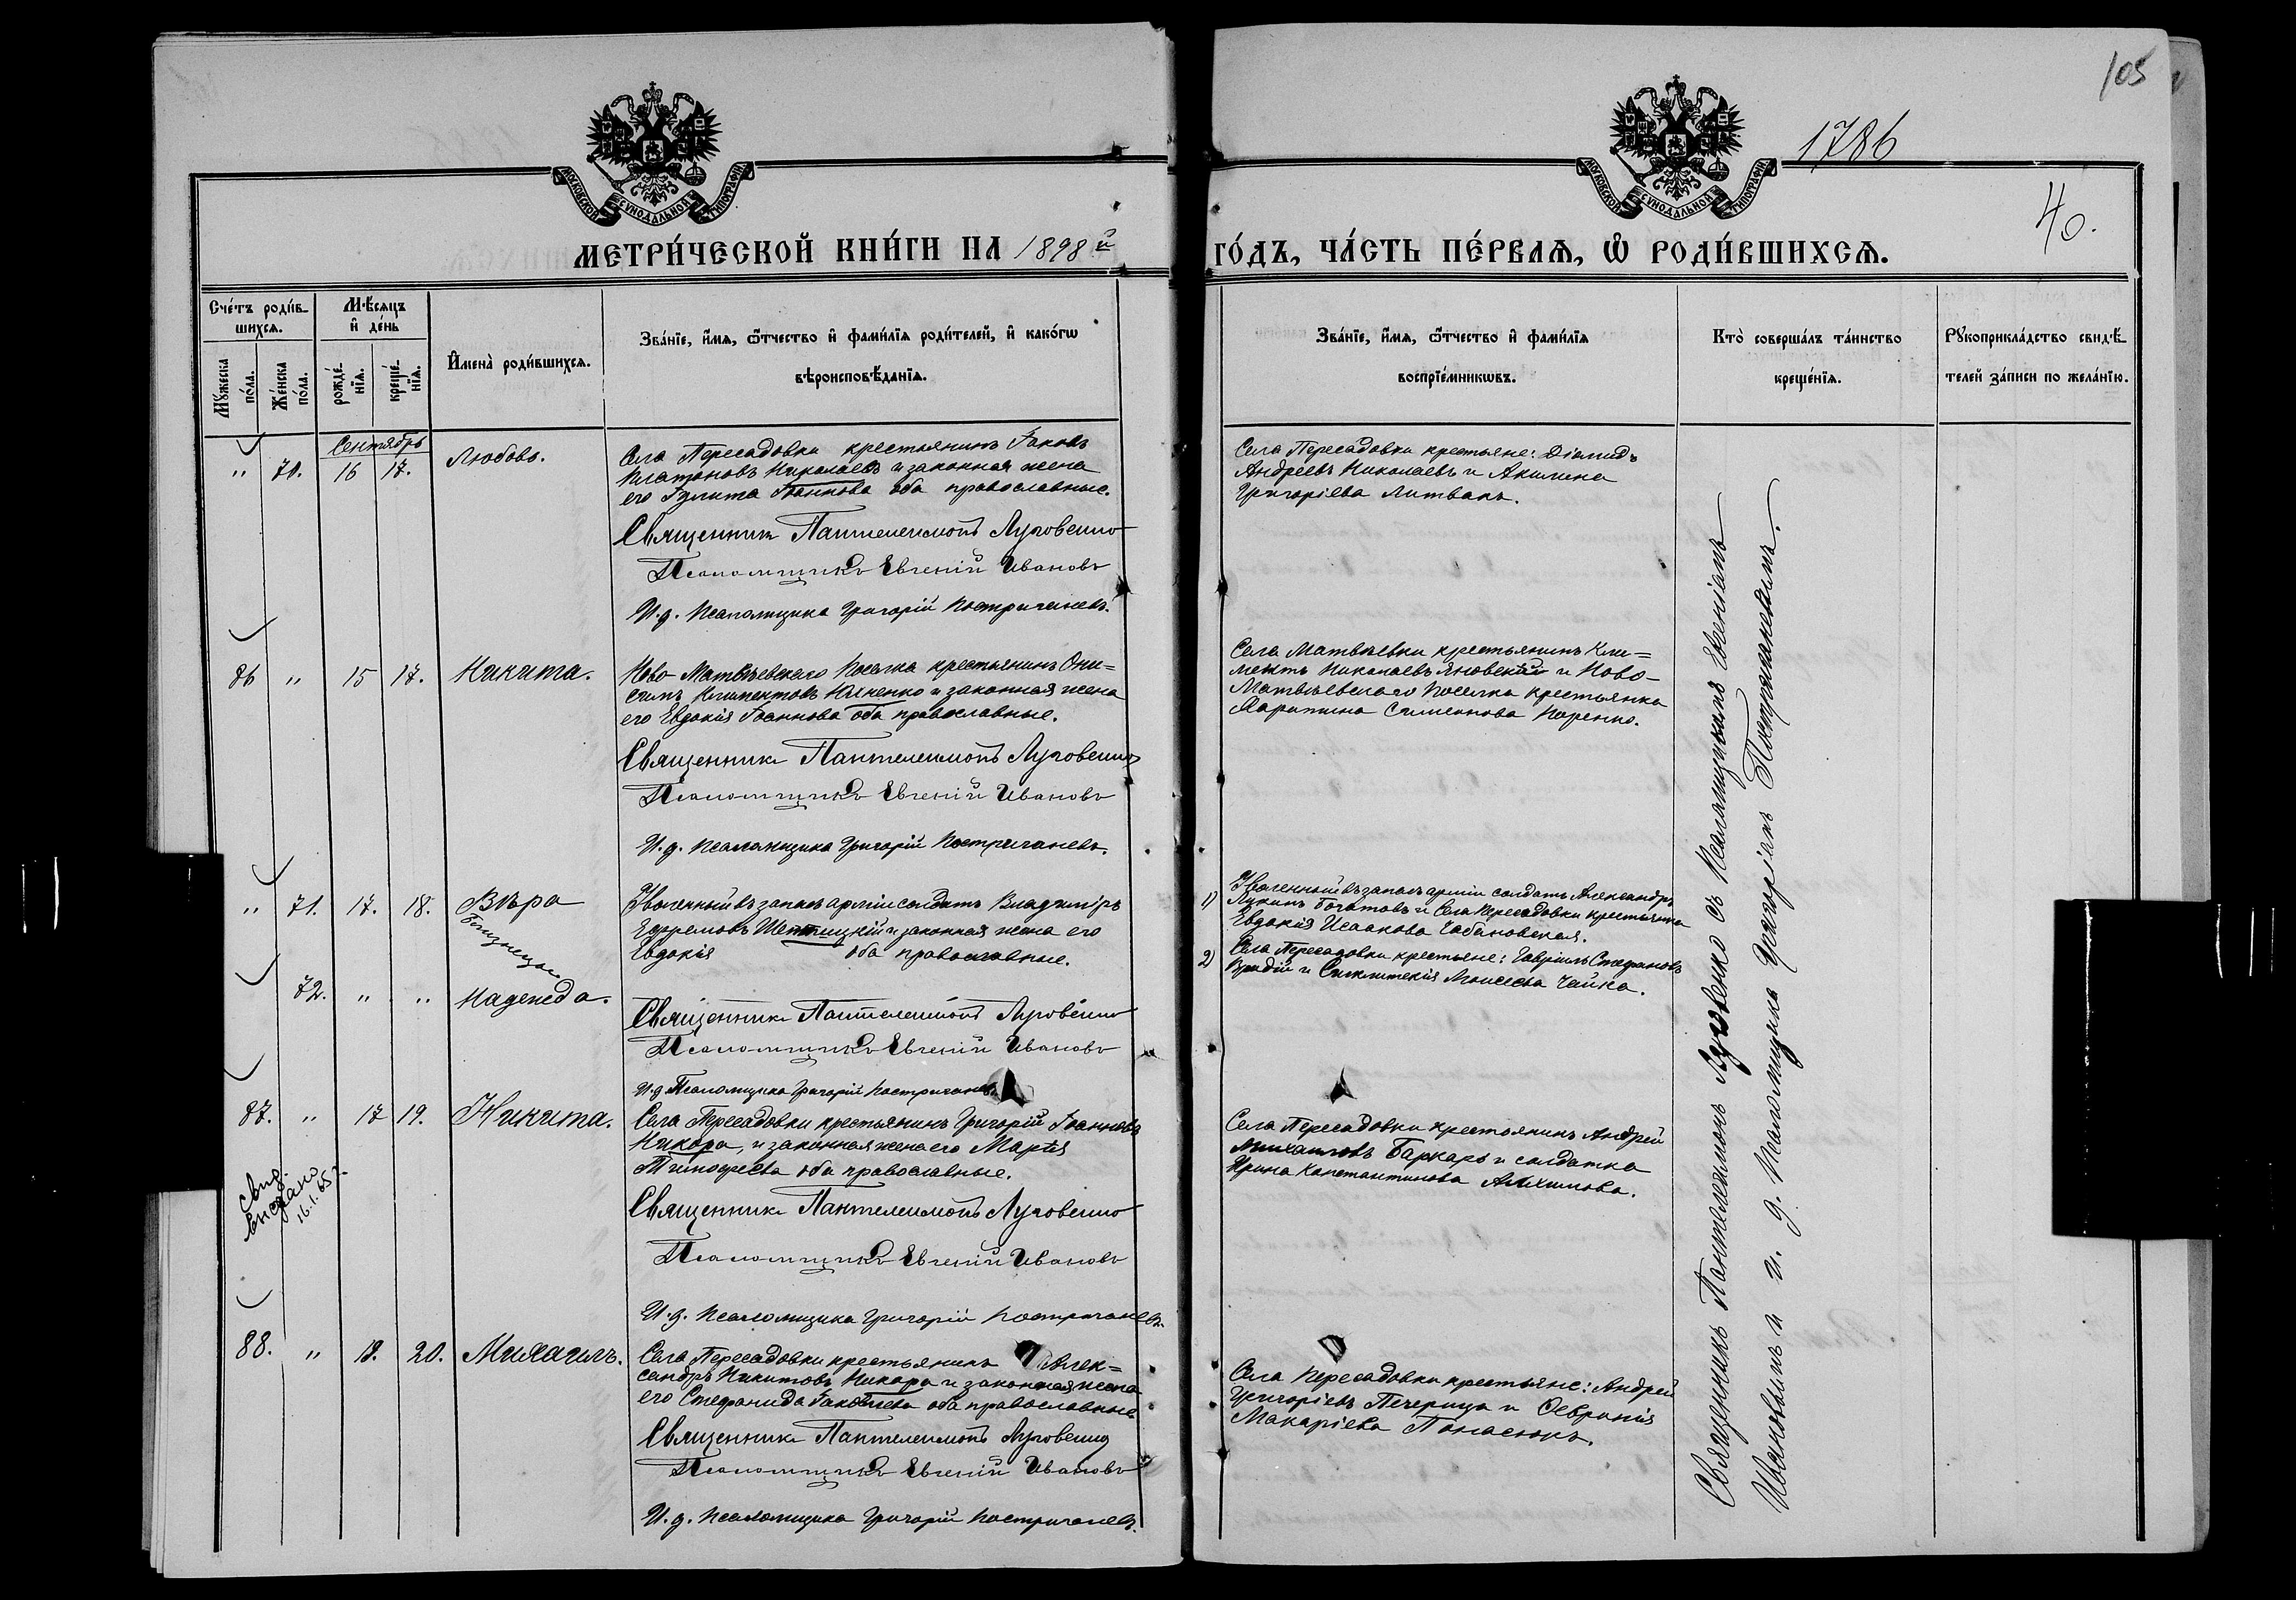 105
1786
40.
МОСКОВСКОЙ СѴНОДАЛЬНОЙ ТИПОГРАФІИ
МОСКОВСКОЙ СѴНОДАЛЬНОЙ ТИПОГРАФІИ
МЕТРИ́ЧЕСКОЙ КНИ́ГИ НА 1898й ГО́ДЪ, ЧА́СТЬ ПЕ́РВАЯ, Ѡ РОДИ́ВШИХСЯ.
Сче́тъ роди́в-
шихся.
Му́жеска по́ла.
Же́нска по́ла.
Мѣ́сяцъ
и де́нь
рожде́-
нїя.
креще́-
нїя.
Имена̀ роди́вшихся.
Зва́нїе, и́мя, ѻ́тчество и фами́лїя роди́телей, и како́гѡ
вѣроисповѣ́данїя.
Зва́нїе, и́мя, ѻ́тчество и фами́лїя
воспрїе́мникѡвъ.
Кто̀ соверша́лъ та́инство
креще́нїя.
Рукоприкла́дство свидѣ́-
телей за́писи по жела́нїю.
Сентябрь
" 70. 16 17. Любовь.
Села Пересадовки крестьянинъ Іаковъ
Платоновъ Николаевъ и законная жена
его Іулита Іоаннова оба православные.
Священникъ Пантелеимонъ Луговенко
Псаломщикъ Евгеній Ивановъ
И.д. псаломщика Григорій Постриганевъ.
Села Пересадовки крестьяне: Діомидъ
Андреевъ Николаевъ и Акилина
Григоріева Литвакъ.
86 " 15 17. Никита.
Ново-Матвѣевскаго поселка крестьянинъ Они-
симъ Климентовъ Юхненко и законная жена
его Евдокія Іоаннова оба православные.
Священникъ Пантелеимонъ Луговенко
Псаломщикъ Евгеній Ивановъ
И.д. псаломщика Григорій Постриганевъ.
Села Матвѣевки крестьянинъ Кли-
ментъ Николаевъ Яновскій и Ново-
Матвѣевскаго поселка крестьянка
Симеонова Коренко.
" 71. 17. 18. Вѣра
Близнецы
72. " " Надежда.
Уволенный въ запасъ арміи солдатъ Владиміръ
Ефремовъ Шептицкій и законная жена его
Евдокія оба православные.
Священникъ Пантелеимонъ Луговенко
Псаломщикъ Евгеній Ивановъ
И.д. Псаломщика Григорій Постриганевъ
1) Уволенный въ запасъ арміи солдатъ Александръ
Лукинъ Богатовъ и Села Пересадовки крестьянка
Евдокія Исаакова Чабановская.
2) Села Пересадовки крестьяне: Гавріилъ Стефановъ
и Синклитикія Моисеева Чайка.
87. " 17 19. Никита.
Свид.
выдано
16.1.65 г.
Села Пересадовки крестьянинъ Григорій Іоанновъ
Никора, и законная жена его Марія
Тимофеева оба православные.
Священникъ Пантелеимонъ Луговенко
Псаломщикъ Евгеній Ивановъ
И.д. псаломщика Григорій Постриганевъ.
Села Пересадовки крестьянинъ Андрей
Михаиловъ Баркарь и солдатка
Ирина Константинова Алхимова.
88. " 18. 20. Михаилъ.
Села Пересадовки крестьянинъ Алек-
сандръ Никитовъ Никора и законная жена
его Стефанида Іаковлева оба православные
Священникъ Пантелеимонъ Луговенко
Псаломщикъ Евгеній Ивановъ
И.д. псаломщика Григорій Постриганевъ.
Села Пересадовки крестьяне: Андрей
Григоріевъ Печерица и Февронія
Макаріева Панасюкъ.
Священникъ Пантелеимонъ Луговенко съ псаломщикомъ Евгеніемъ
Ивановымъ и и. д. псаломщика Григоріемъ Постриганевымъ.